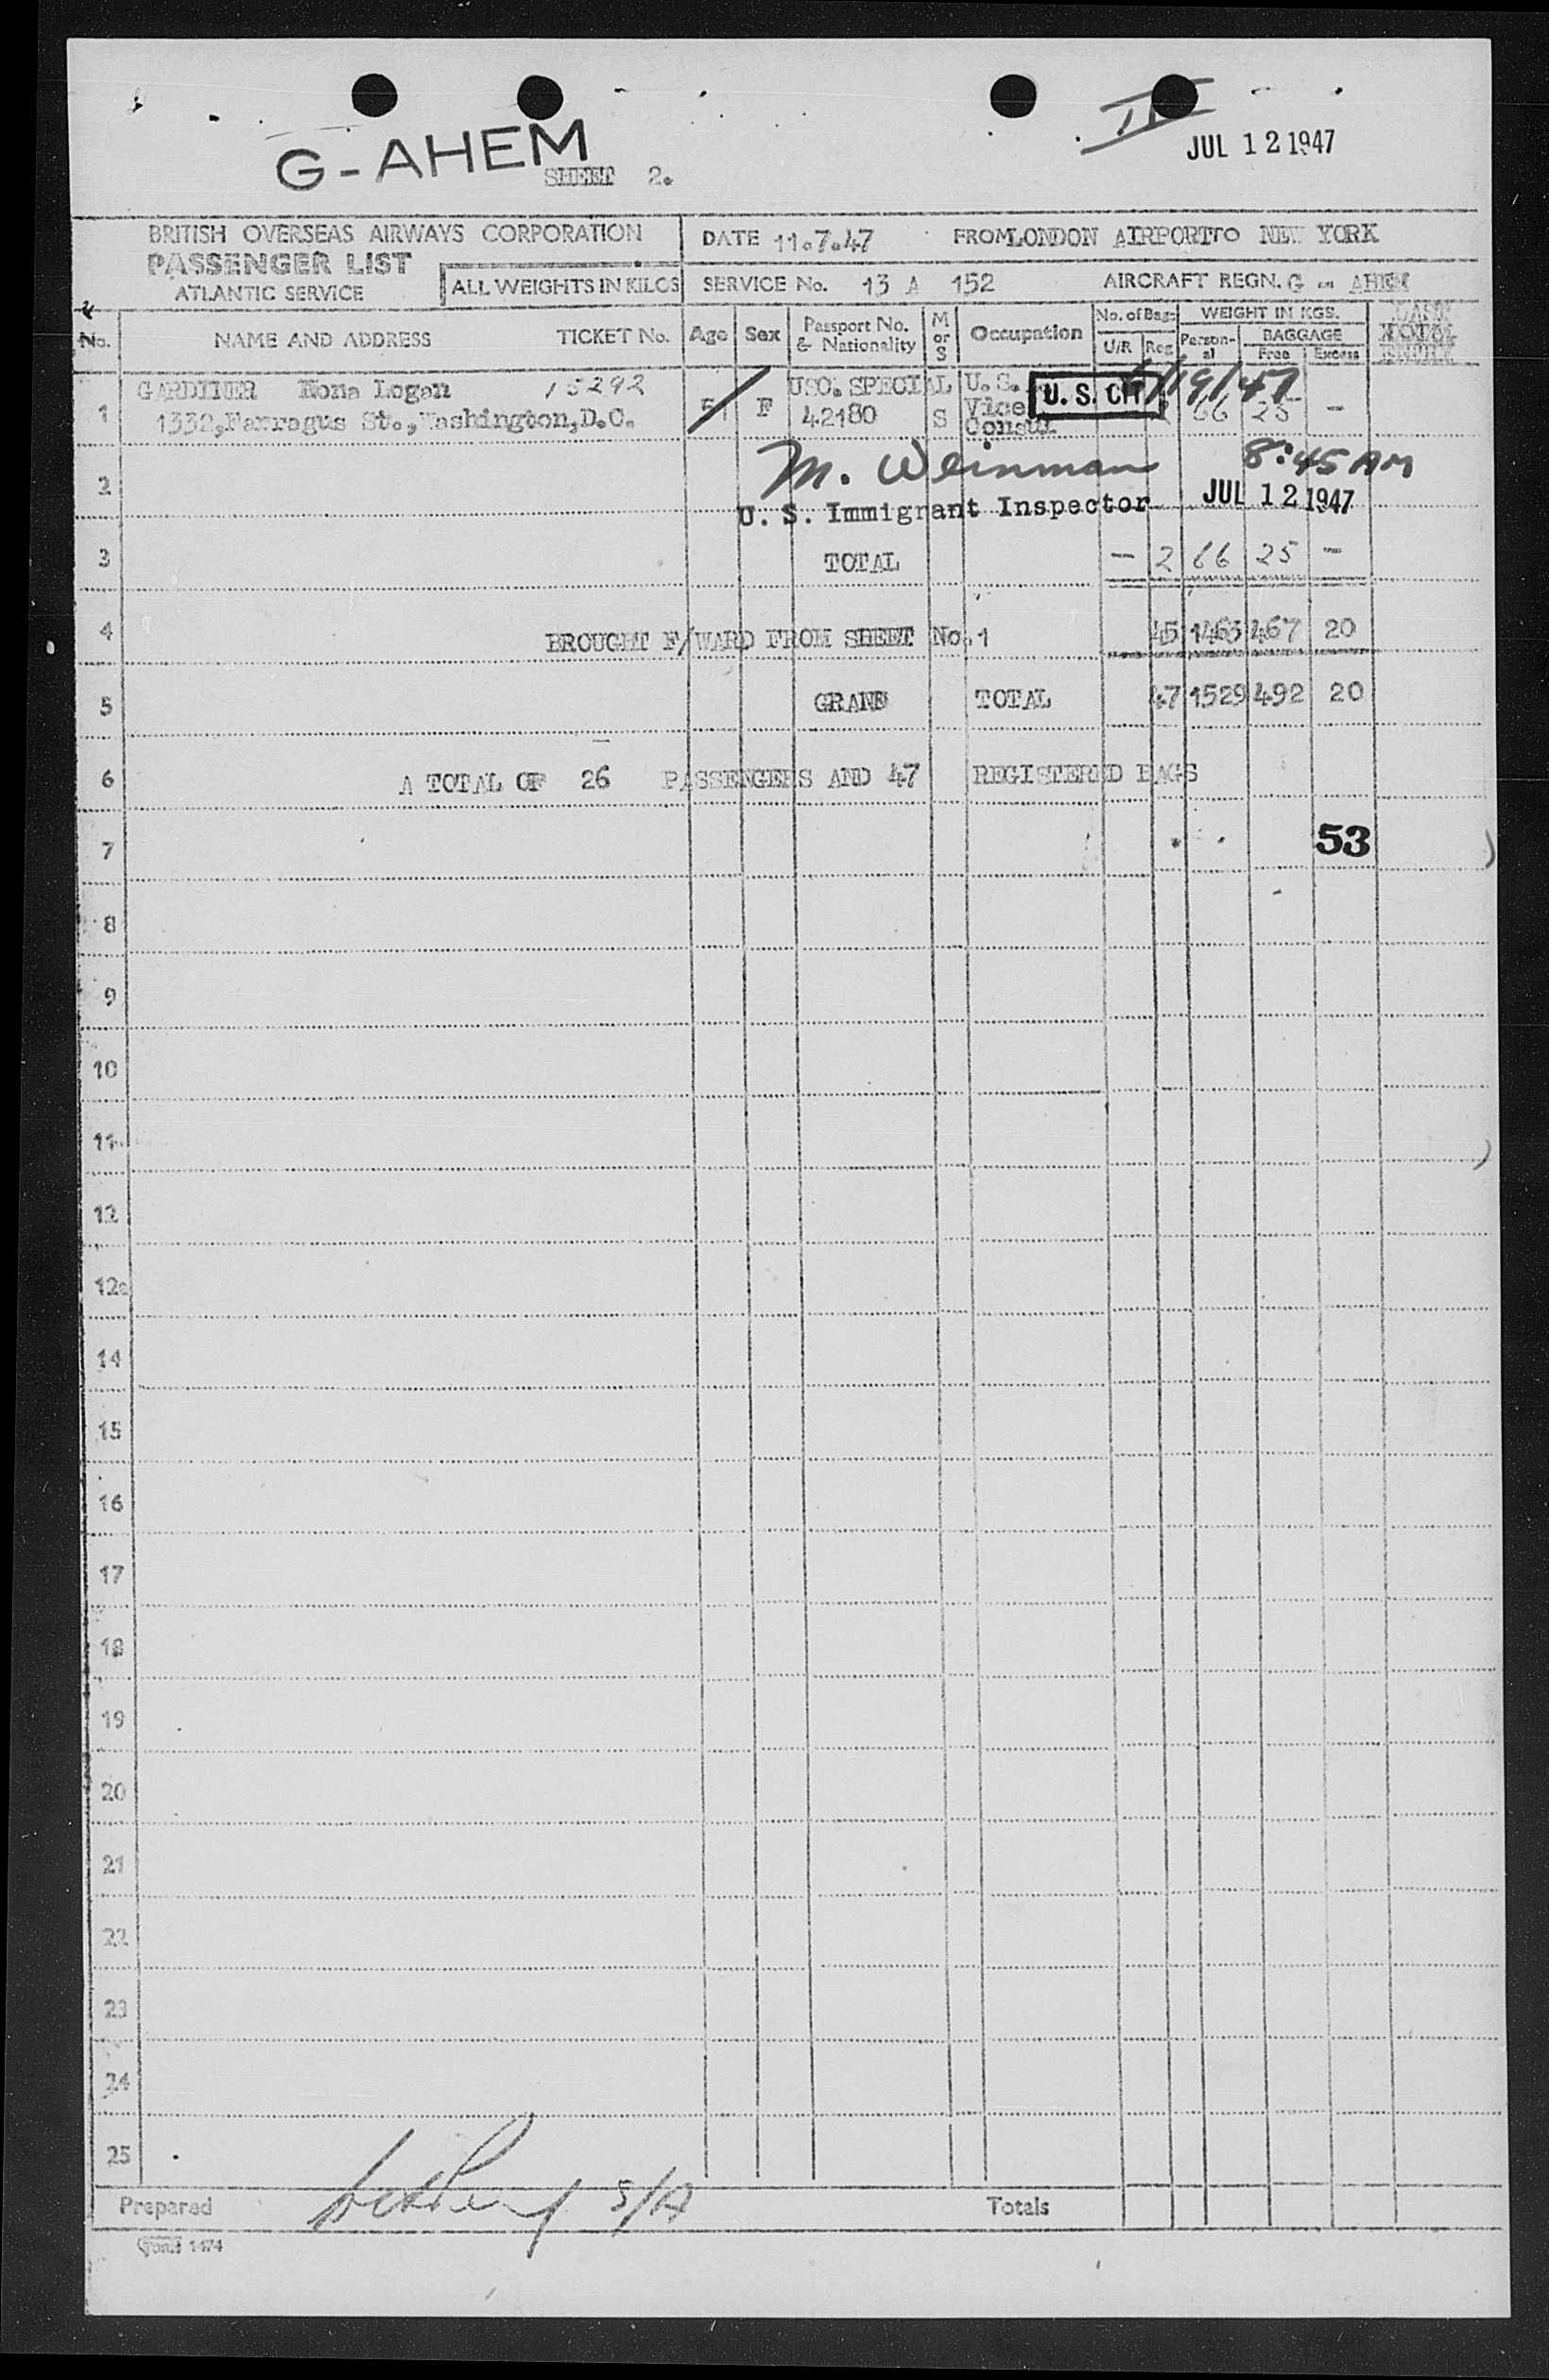 JUL 12 1947
G-AHEM
SHEET 2.
BRITISH OVERSEAS AIRWAYS CORPORATION
PASSENGER LIST
ATLANTIC SERVICE
ALL WEIGHTS IN KILOS
DATE 11.7.47 FROM LONDON AIRPORT TO NEW YORK
SERVICE No. 13 A 152 AIRCRAFT REGN. G - AHEM
No. NAME AND ADDRESS TICKET No. Age Sex Passport No. & Nationality M or S Occupation No. of Bags U/R Reg WEIGHT IN KGS. Personal BAGGAGE Free Excess
1 GARDINER Nona Logan 15292 F USC. SPECIAL U.S.
1332, Farragus St., Washington, D.C. 42180 S Vice Consul U. S. CIT 66 25 -
2 M. Weinman 8:45 AM
U. S. Immigrant Inspector JUL 12 1947
3 TOTAL - 2 66 25 -
4 BROUGHT F/WARD FROM SHEET No.1 45 1463 467 20
5 GRAND TOTAL 47 1529 492 20
6 A TOTAL OF 26 PASSENGERS AND 47 REGISTERED BAGS
7 53
8
9
10
11
12
12a
14
15
16
17
18
19
20
21
22
23
24
25
Prepared S/A Totals
Form 1474